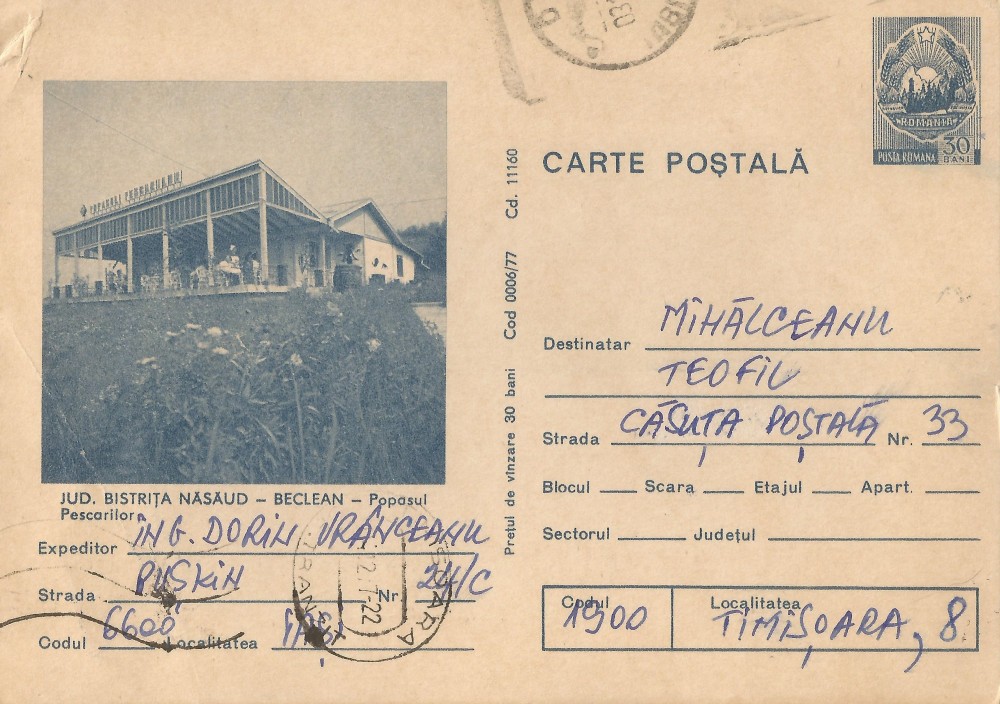 CARTE POȘTALĂ
ROMANIA
POSTA ROMANA 30 BANI
POPASUL PESCARULUI
JUD. BISTRIȚA NĂSĂUD – BECLEAN – Popasul
Pescarilor
Expeditor ÎNG. DORIN VRÂNCEANU
Strada PUȘKIN Nr. 24/C
Codul 6600 Localitatea IAȘI
Prețul de vînzare 30 bani Cod 0006/77 Cd. 11160
Destinatar MIHĂLCEANU
TEOFIL
Strada CĂSUȚA POȘTALĂ Nr. 33
Blocul Scara Etajul Apart.
Sectorul Județul
Codul 1900 Localitatea TIMIȘOARA, 8